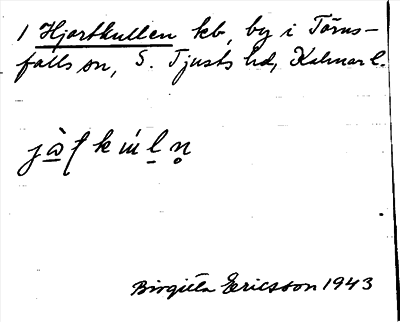 1 Hjortkullen kb, by i Törns-
falls sn, S. Tjusts hd, Kalmar l.
Birgitta Ericsson 1943